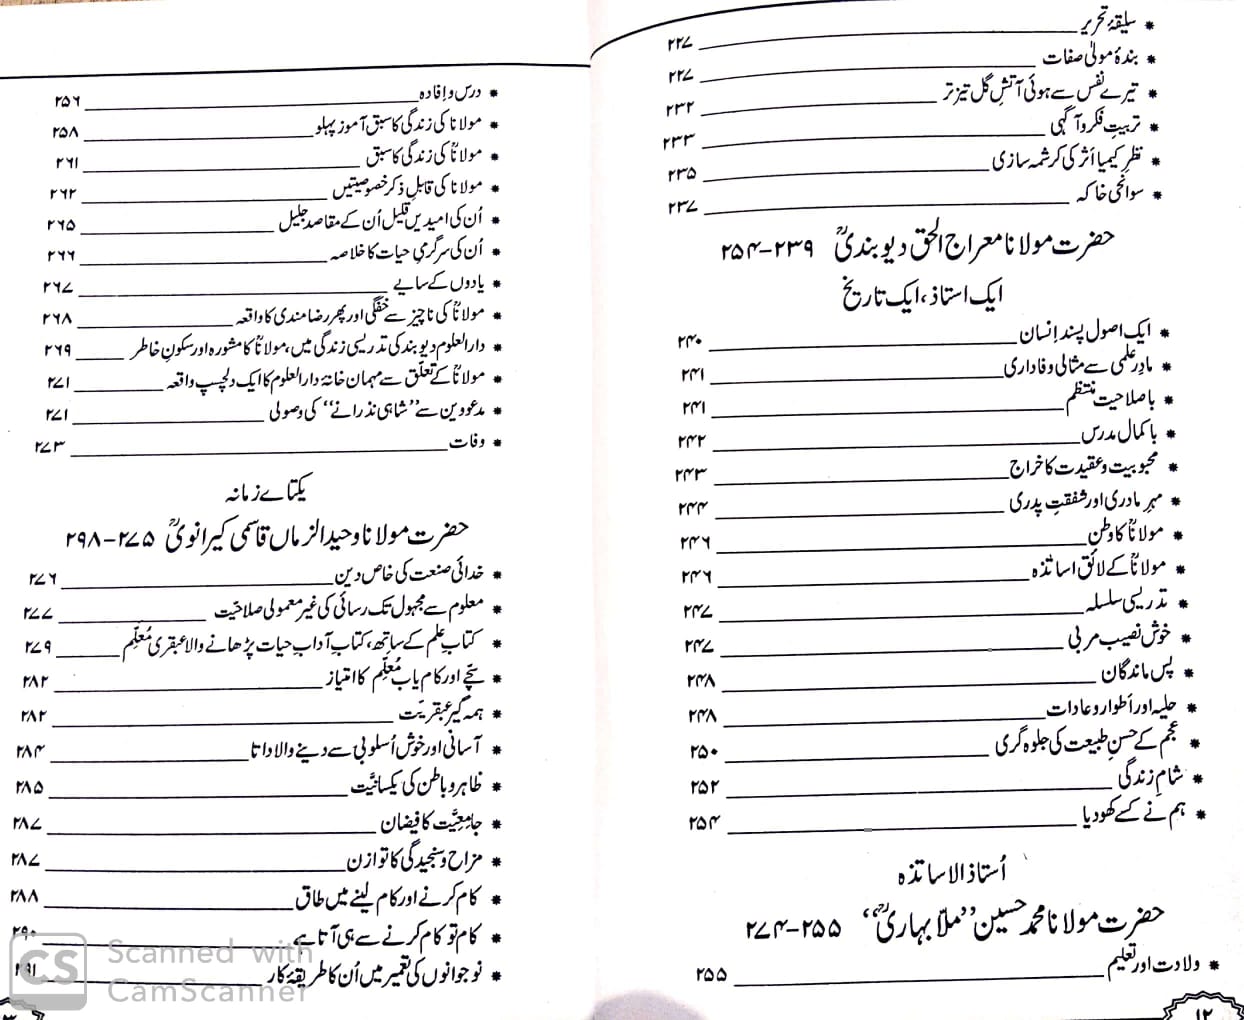 * سلیقۂ تحریر ۲۲۷
* بندۂ مولیٰ صفات ۲۲۷
* تیرے نفس سے ہوئی آتشِ گل تیز تر ۲۳۲
* تربیتِ فکر و آگہی ۲۳۳
* نظرِ کیمیا اَثر کی کرشمہ سازی ۲۳۵
* سوانحی خاکہ ۲۳۷
حضرت مولانا معراج الحق دیوبندیؒ ۲۳۹-۲۵۴
ایک استاذ، ایک تاریخ
* ایک اصول پسند اِنسان ۲۴۰
* مادرِ علمی سے مثالی وفاداری ۲۴۱
* باصلاحیت منتظم ۲۴۱
* باکمال مدرس ۲۴۲
* محبوبیت و عقیدت کا خراج ۲۴۳
* مہرِ مادری اور شفقتِ پدری ۲۴۴
* مولاناؒ کا وطن ۲۴۶
* مولاناؒ کے لائق اساتذہ ۲۴۶
* تدریسی سلسلہ ۲۴۷
* خوش نصیب مربی ۲۴۷
* پس ماندگان ۲۴۸
* حلیہ اور اَطوار و عادات ۲۴۸
* عجم کے حسنِ طبیعت کی جلوہ گری ۲۵۰
* شامِ زندگی ۲۵۲
* ہم نے کسے کھو دیا ۲۵۴
اُستاذ الاساتذہ
حضرت مولانا محمد حسین ”ملّا بہاریؒ“ ۲۵۵-۲۷۴
* ولادت اور تعلیم ۲۵۵
۱۲
* درس و اِفادہ ۲۵۶
* مولانا کی زندگی کا سبق آموز پہلو ۲۵۸
* مولاناؒ کی زندگی کا سبق ۲۶۱
* مولانا کی قابلِ ذکر خصوصیتیں ۲۶۲
* اُن کی امیدیں قلیل اُن کے مقاصد جلیل ۲۶۵
* اُن کی سرگرمیِ حیات کا خلاصہ ۲۶۶
* یادوں کے سایے ۲۶۷
* مولاناؒ کی ناچیز سے خفگی اور پھر رضامندی کا واقعہ ۲۶۸
* دارالعلوم دیوبند کی تدریسی زندگی میں، مولاناؒ کا مشورہ اور سکونِ خاطر ۲۶۹
* مولاناؒ کے تعلّق سے مہمان خانۂ دارالعلوم کا ایک دلچسپ واقعہ ۲۷۱
* مدعووین سے ”شاہی نذرانے“ کی وصولی ۲۷۱
* وفات ۲۷۳
یکتاے زمانہ
حضرت مولانا وحید الزماں قاسمی کیرانویؒ ۲۷۵-۲۹۸
* خدائی صنعت کی خاص دین ۲۷۶
* معلوم سے مجہول تک رسائی کی غیر معمولی صلاحیّت ۲۷۷
* کتابِ علم کے ساتھ، کتابِ آدابِ حیات پڑھانے والا عبقری مُعلّم ۲۷۹
* سچّے اور کام یاب مُعلّم کا امتیاز ۲۸۲
* ہمہ گیر عبقریّت ۲۸۲
* آسانی اور خوش اُسلوبی سے دینے والا داتا ۲۸۴
* ظاہر و باطن کی یکسانیَّت ۲۸۵
* جامِعیَّت کا فیضان ۲۸۷
* مزاح و سنجیدگی کا توازن ۲۸۷
* کام کرنے اور کام لینے میں طاق ۲۸۸
* کام تو کام کرنے سے ہی آتا ہے ۲۹۰
* نوجوانوں کی تعمیر میں اُن کا طریقۂ کار ۲۹۱
CS Scanned with
CamScanner